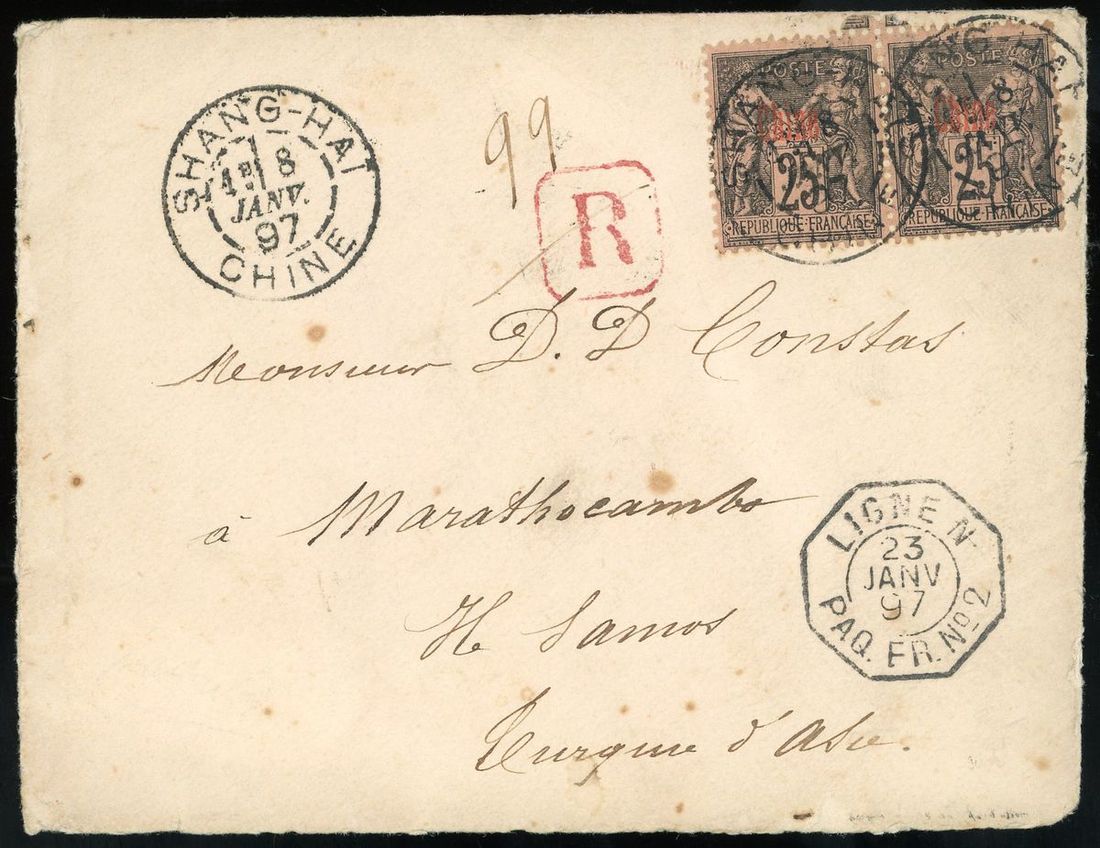 SHANG-HAÏ
1
8
JANV.
97
CHINE
99
R
POSTE
Chine
25
REPUBLIQUE FRANÇAISE
POSTE
Chine
25
REPUBLIQUE FRANÇAISE
Monsieur D. D Constas
à Marathocambo
Samos
Turquie d'Asie.
LIGNE N
23
JANV
97
PAQ. FR. Nº 2